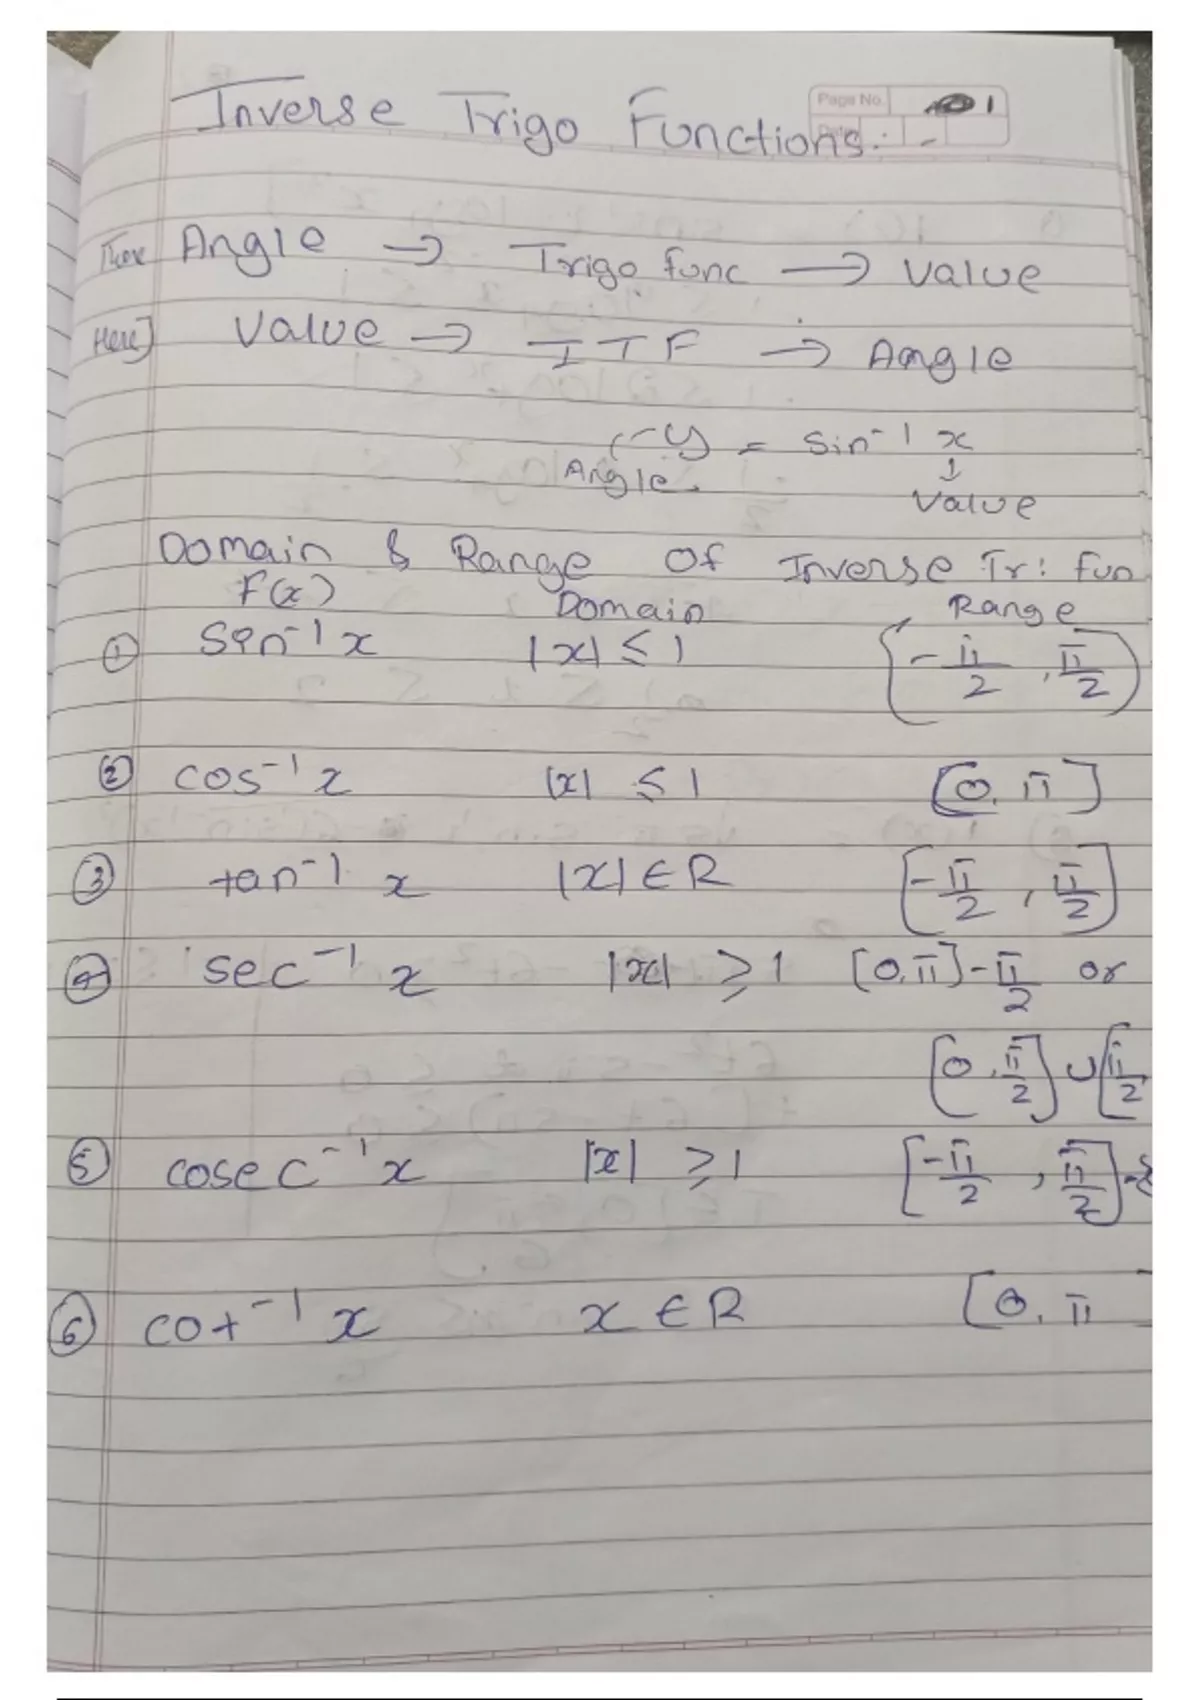 Inverse Trigo Functions.
Page No. 01
There Angle → Trigo func → value
Here] value → ITF → Angle
y = sin⁻¹ x
Angle. value
Domain & Range of Inverse Tr: fun
F(x) Domain Range
① Sin⁻¹x |x| ≤ 1 [-π/2, π/2]
② cos⁻¹x |x| ≤ 1 [0, π]
③ tan⁻¹ x |x| ∈ R [-π/2, π/2]
④ sec⁻¹ x |x| ≥ 1 [0, π] - π/2 or
[0, π/2] ∪ [π/2
⑤ cosec⁻¹x |x| ≥ 1 [-π/2, π/2] - {
⑥ cot⁻¹ x x ∈ R [0, π